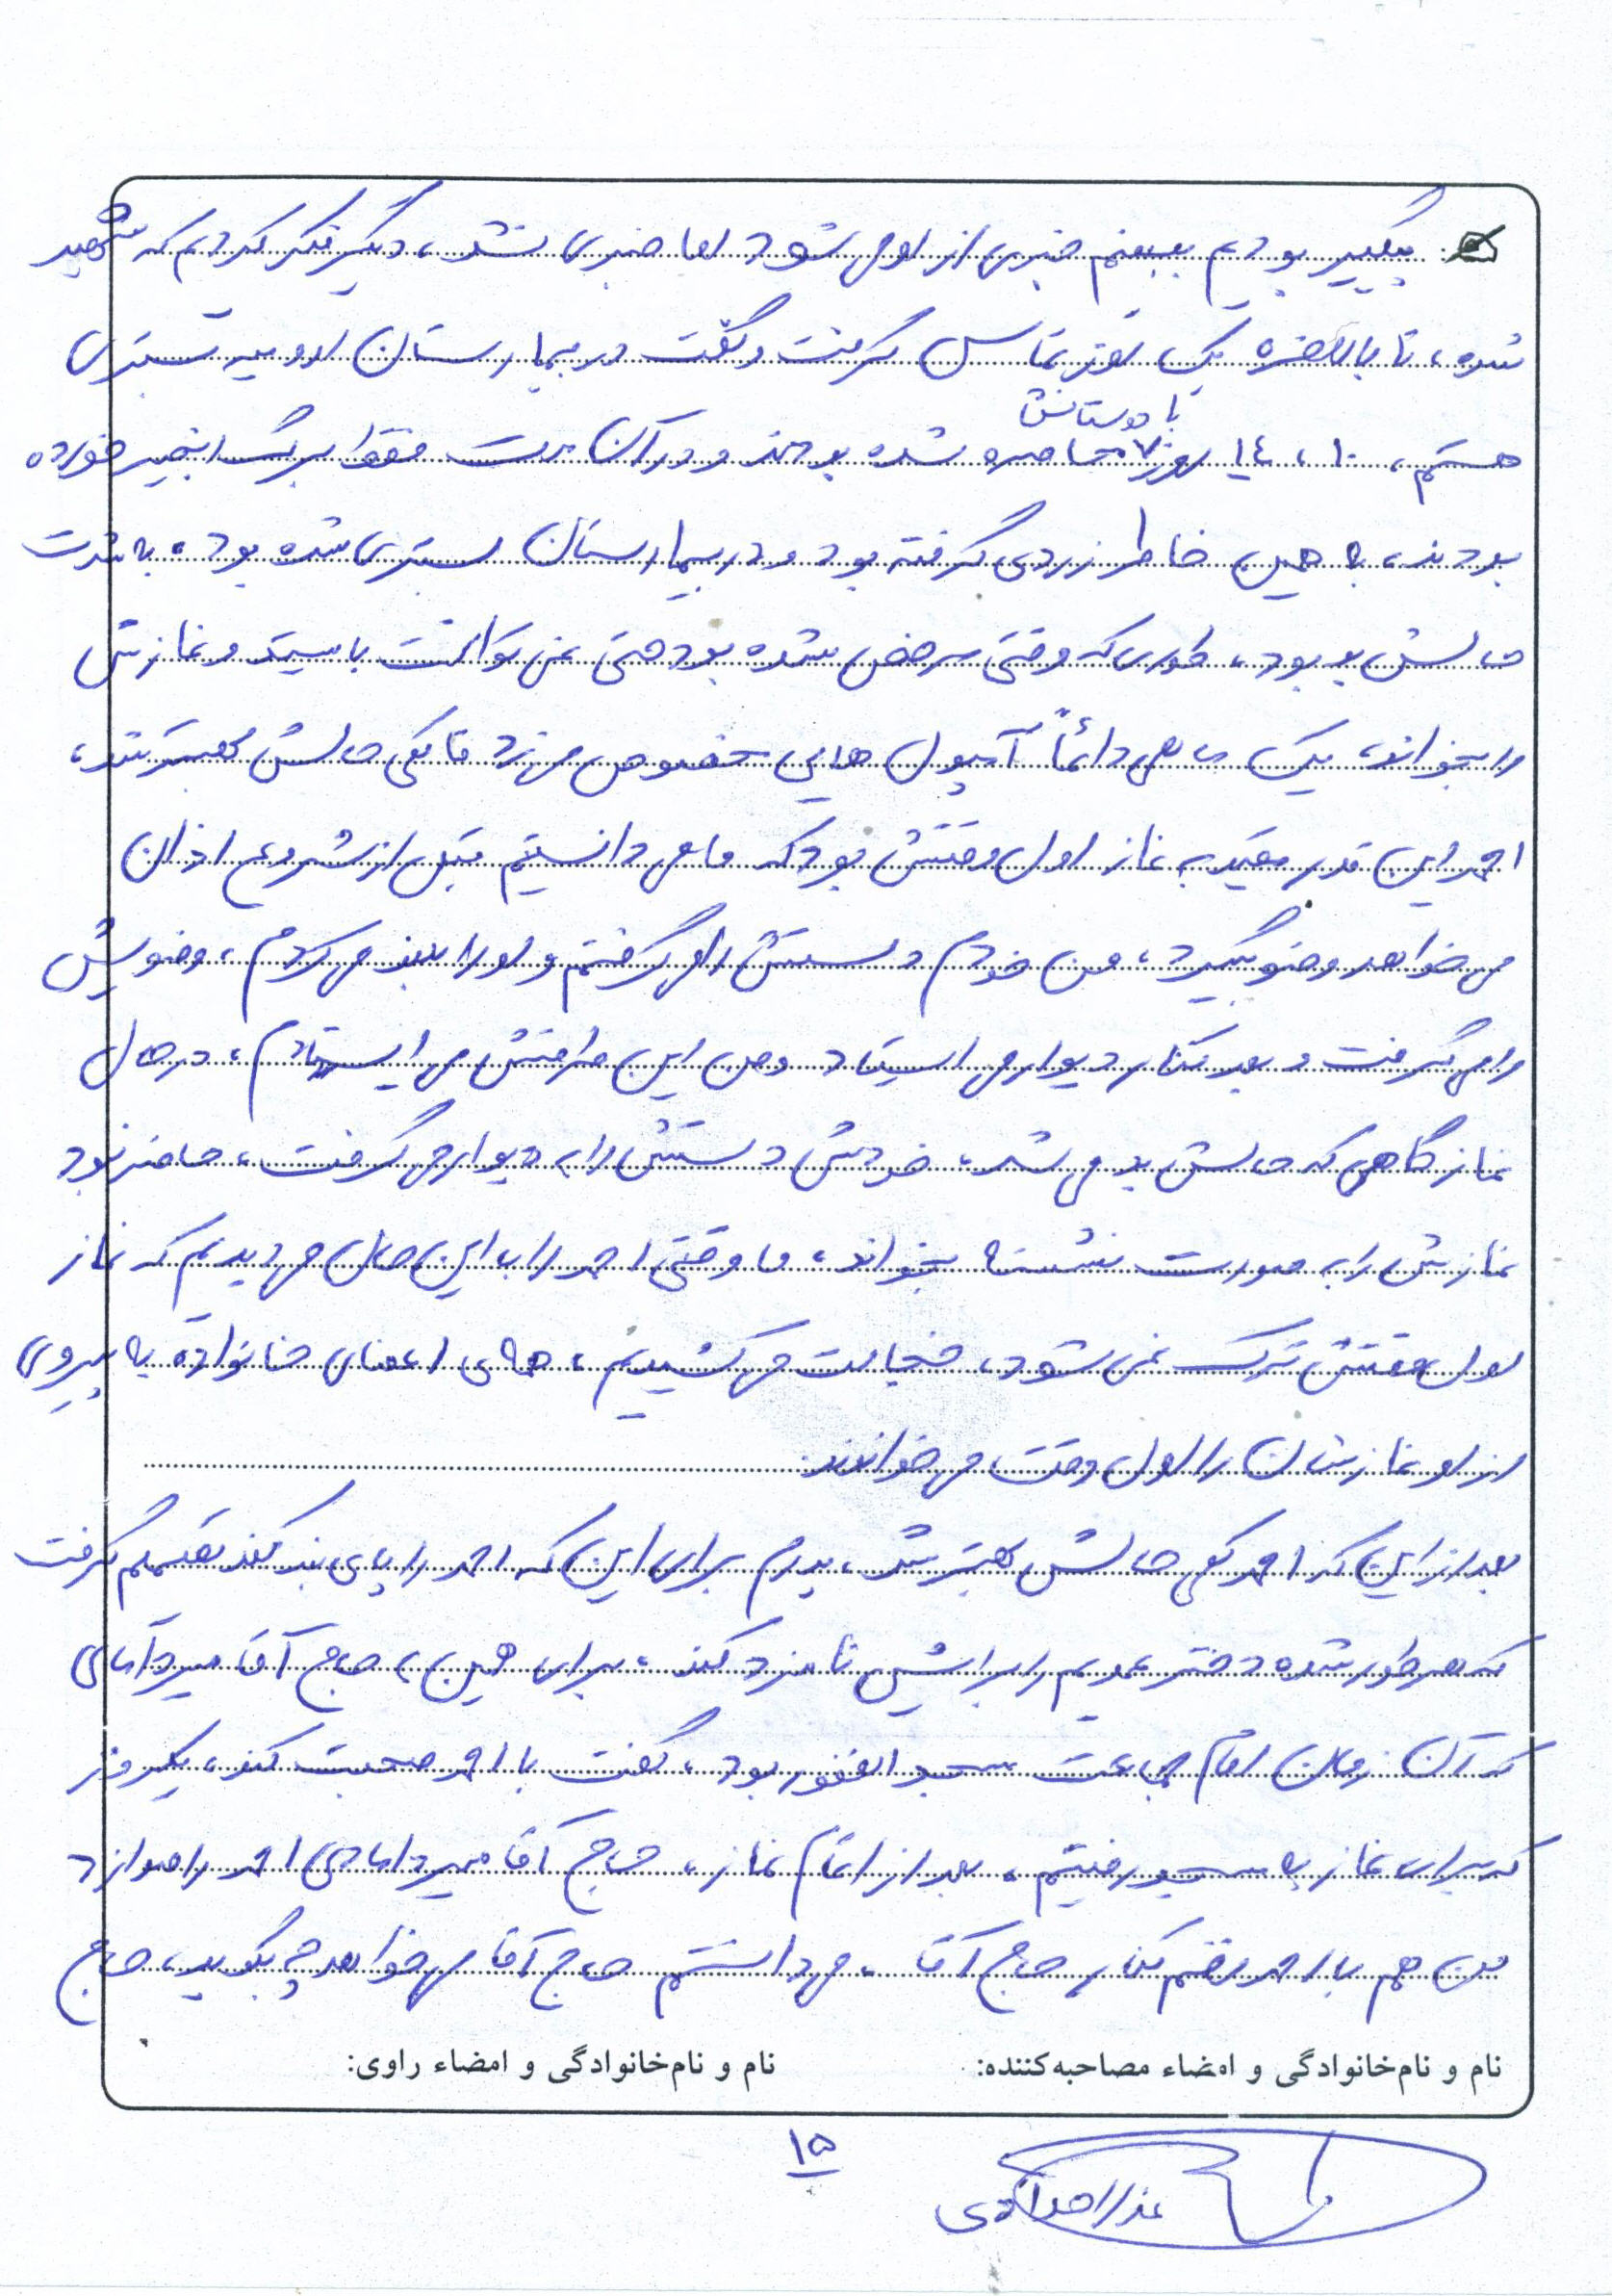 پیگیر بودیم ببینیم خبری از او می شود اما خبری نشد، دیگر فکر کردیم که شهید
شده، تا بالاخره یک روز تماس گرفت و گفت در بیمارستان ارومیه بستری
هستم، ۱۰، ۱۴ روز با دوستانش محاصره شده بودند و در آن مدت فقط برگ انجیر خورده
بودند، به همین خاطر زردی گرفته بود و در بیمارستان بستری شده بود، به شدت
حالش بد بود، طوری که وقتی مرخص شده بود حتی نمی توانست بایستد و نمازش
را بخواند، یک ماهی دائماً آمپول هایی مخصوص می زد تا کمی حالش بهتر شد،
احمد این قدر مقید به نماز اول وقتش بود که ما می دانستیم قبل از شروع اذان
می خواهد وضو بگیرد، من خودم دستش را می گرفتم و او را بلند می کردم، وضویش
را می گرفت و بعد کنار دیوار می ایستاد و من این طرفش می ایستادم، در حال
نماز گاهی که حالش بد می شد، خودش دستش را به دیوار می گرفت، حاضر نبود
نمازش را به صورت نشسته بخواند، ما وقتی احمد را با این حال می دیدیم که نماز
اول وقتش ترک نمی شود، خجالت می کشیدیم، همه ی اعضای خانواده به پیروی
از او نمازشان را اول وقت می خواندند.
بعد از این که احمد کمی حالش بهتر شد، پدرم برای این که احمد را پای بند کند تصمیم گرفت
که هر طور شده دختر عمویم را برایش نامزد کند، برای همین به حاج آقا میردامادی
که آن زمان امام جماعت مسجد الغفور بود، گفت با احمد صحبت کند، یک روز
که برای نماز به مسجد رفتیم، بعد از اتمام نماز، حاج آقا میردامادی احمد را صدا زد
من هم با احمد رفتم کنار حاج آقا، می دانستم حاج آقا می خواهد چه بگوید، حاج
نام و نام‌خانوادگی و امضاء مصاحبه‌کننده: نام و نام‌خانوادگی و امضاء راوی:
۱۵
عذرا خدادادی